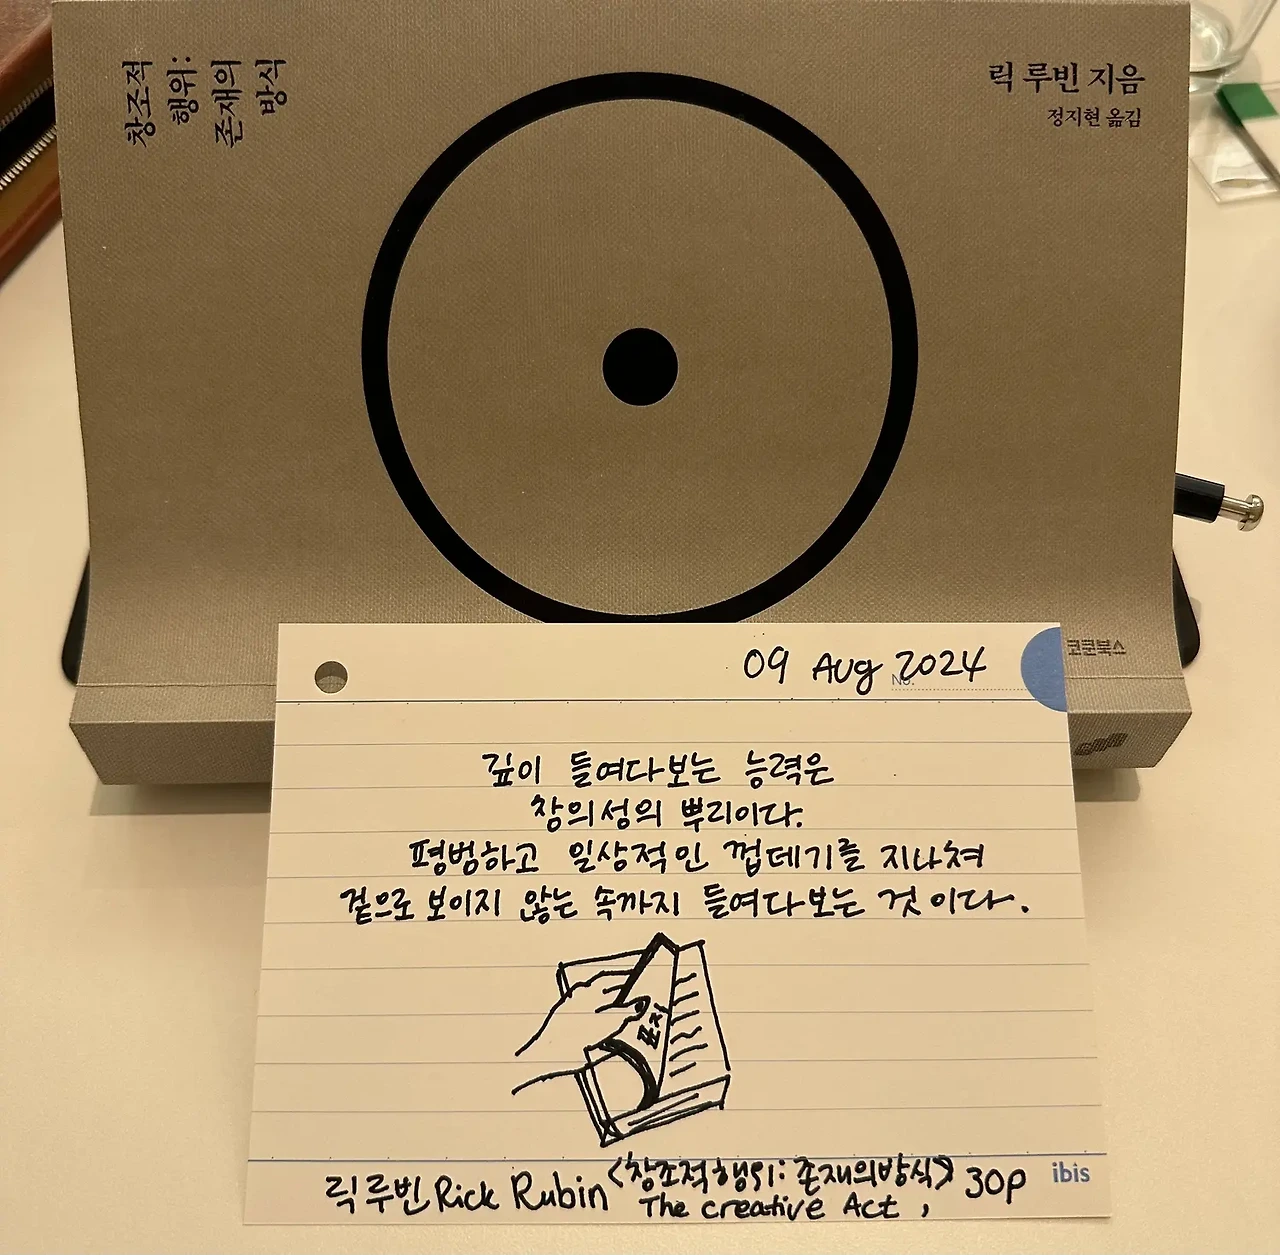 창조적
행위:
존재의
방식
릭 루빈 지음
정지현 옮김
코쿤북스
09 Aug 2024
No.
깊이 들여다보는 능력은
창의성의 뿌리이다.
평범하고 일상적인 껍데기를 지나쳐
겉으로 보이지 않는 속까지 들여다보는 것이다.
표지
릭 루빈 Rick Rubin <창조적 행위: 존재의 방식> 30p
The creative Act,
ibis